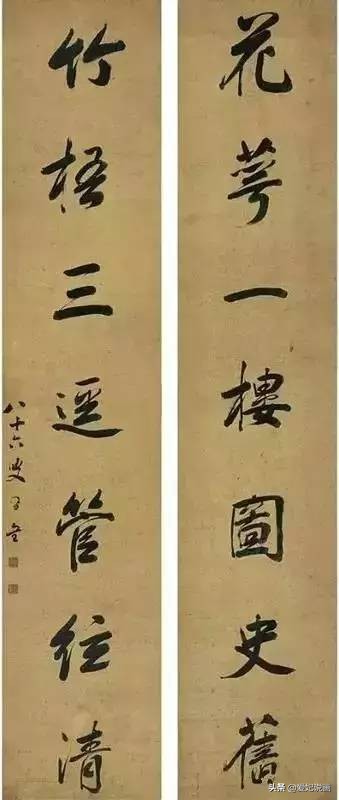 花萼一樓圖史舊
竹梧三逕管絃清
八十六叟
头条 @爱妃说画